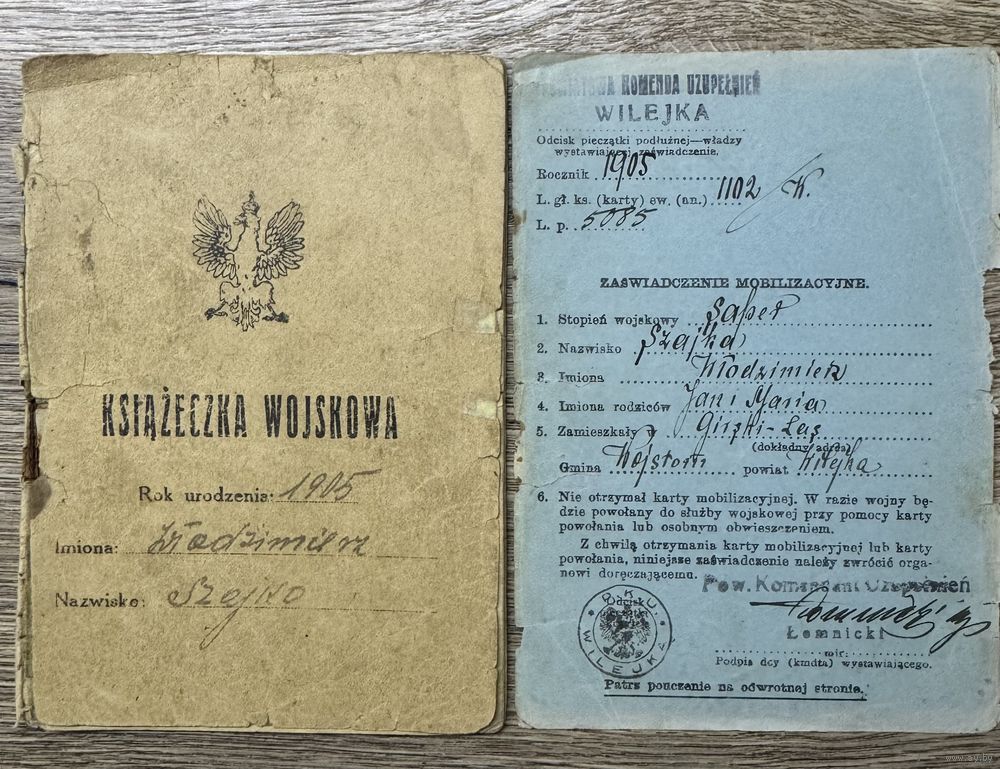 KSIĄŻECZKA WOJSKOWA
Rok urodzenia: 1905
Imiona: Włodzimierz
Nazwisko: Szejko
KOMENDA UZUPEŁNIEŃ
WILEJKA
Odcisk pieczątki podłużnej—władzy
wystawiającej zaświadczenie.
Rocznik 1905
L. gł. ks. (karty) ew. (an.) 1102/K.
L. p. 5085
ZAŚWIADCZENIE MOBILIZACYJNE.
1. Stopień wojskowy Saper
2. Nazwisko Szajka
3. Imiona Włodzimierz
4. Imiona rodziców Jan i Maria
5. Zamieszkały w
(dokładny adres)
Gmina Wojstom powiat Wilejka
6. Nie otrzymał karty mobilizacyjnej. W razie wojny bę-
dzie powołany do służby wojskowej przy pomocy karty
powołania lub osobnym obwieszczeniem.
Z chwilą otrzymania karty mobilizacyjnej lub karty
powołania, niniejsze zaświadczenie należy zwrócić orga-
nowi doręczającemu.
Pow. Komendant Uzupełnień
Odcisk
P.K.U.
WILEJKA
Łomnicki
mjr.
Podpis dcy (kmdta) wystawiającego.
Patrz pouczenie na odwrotnej stronie.
www.ay.by